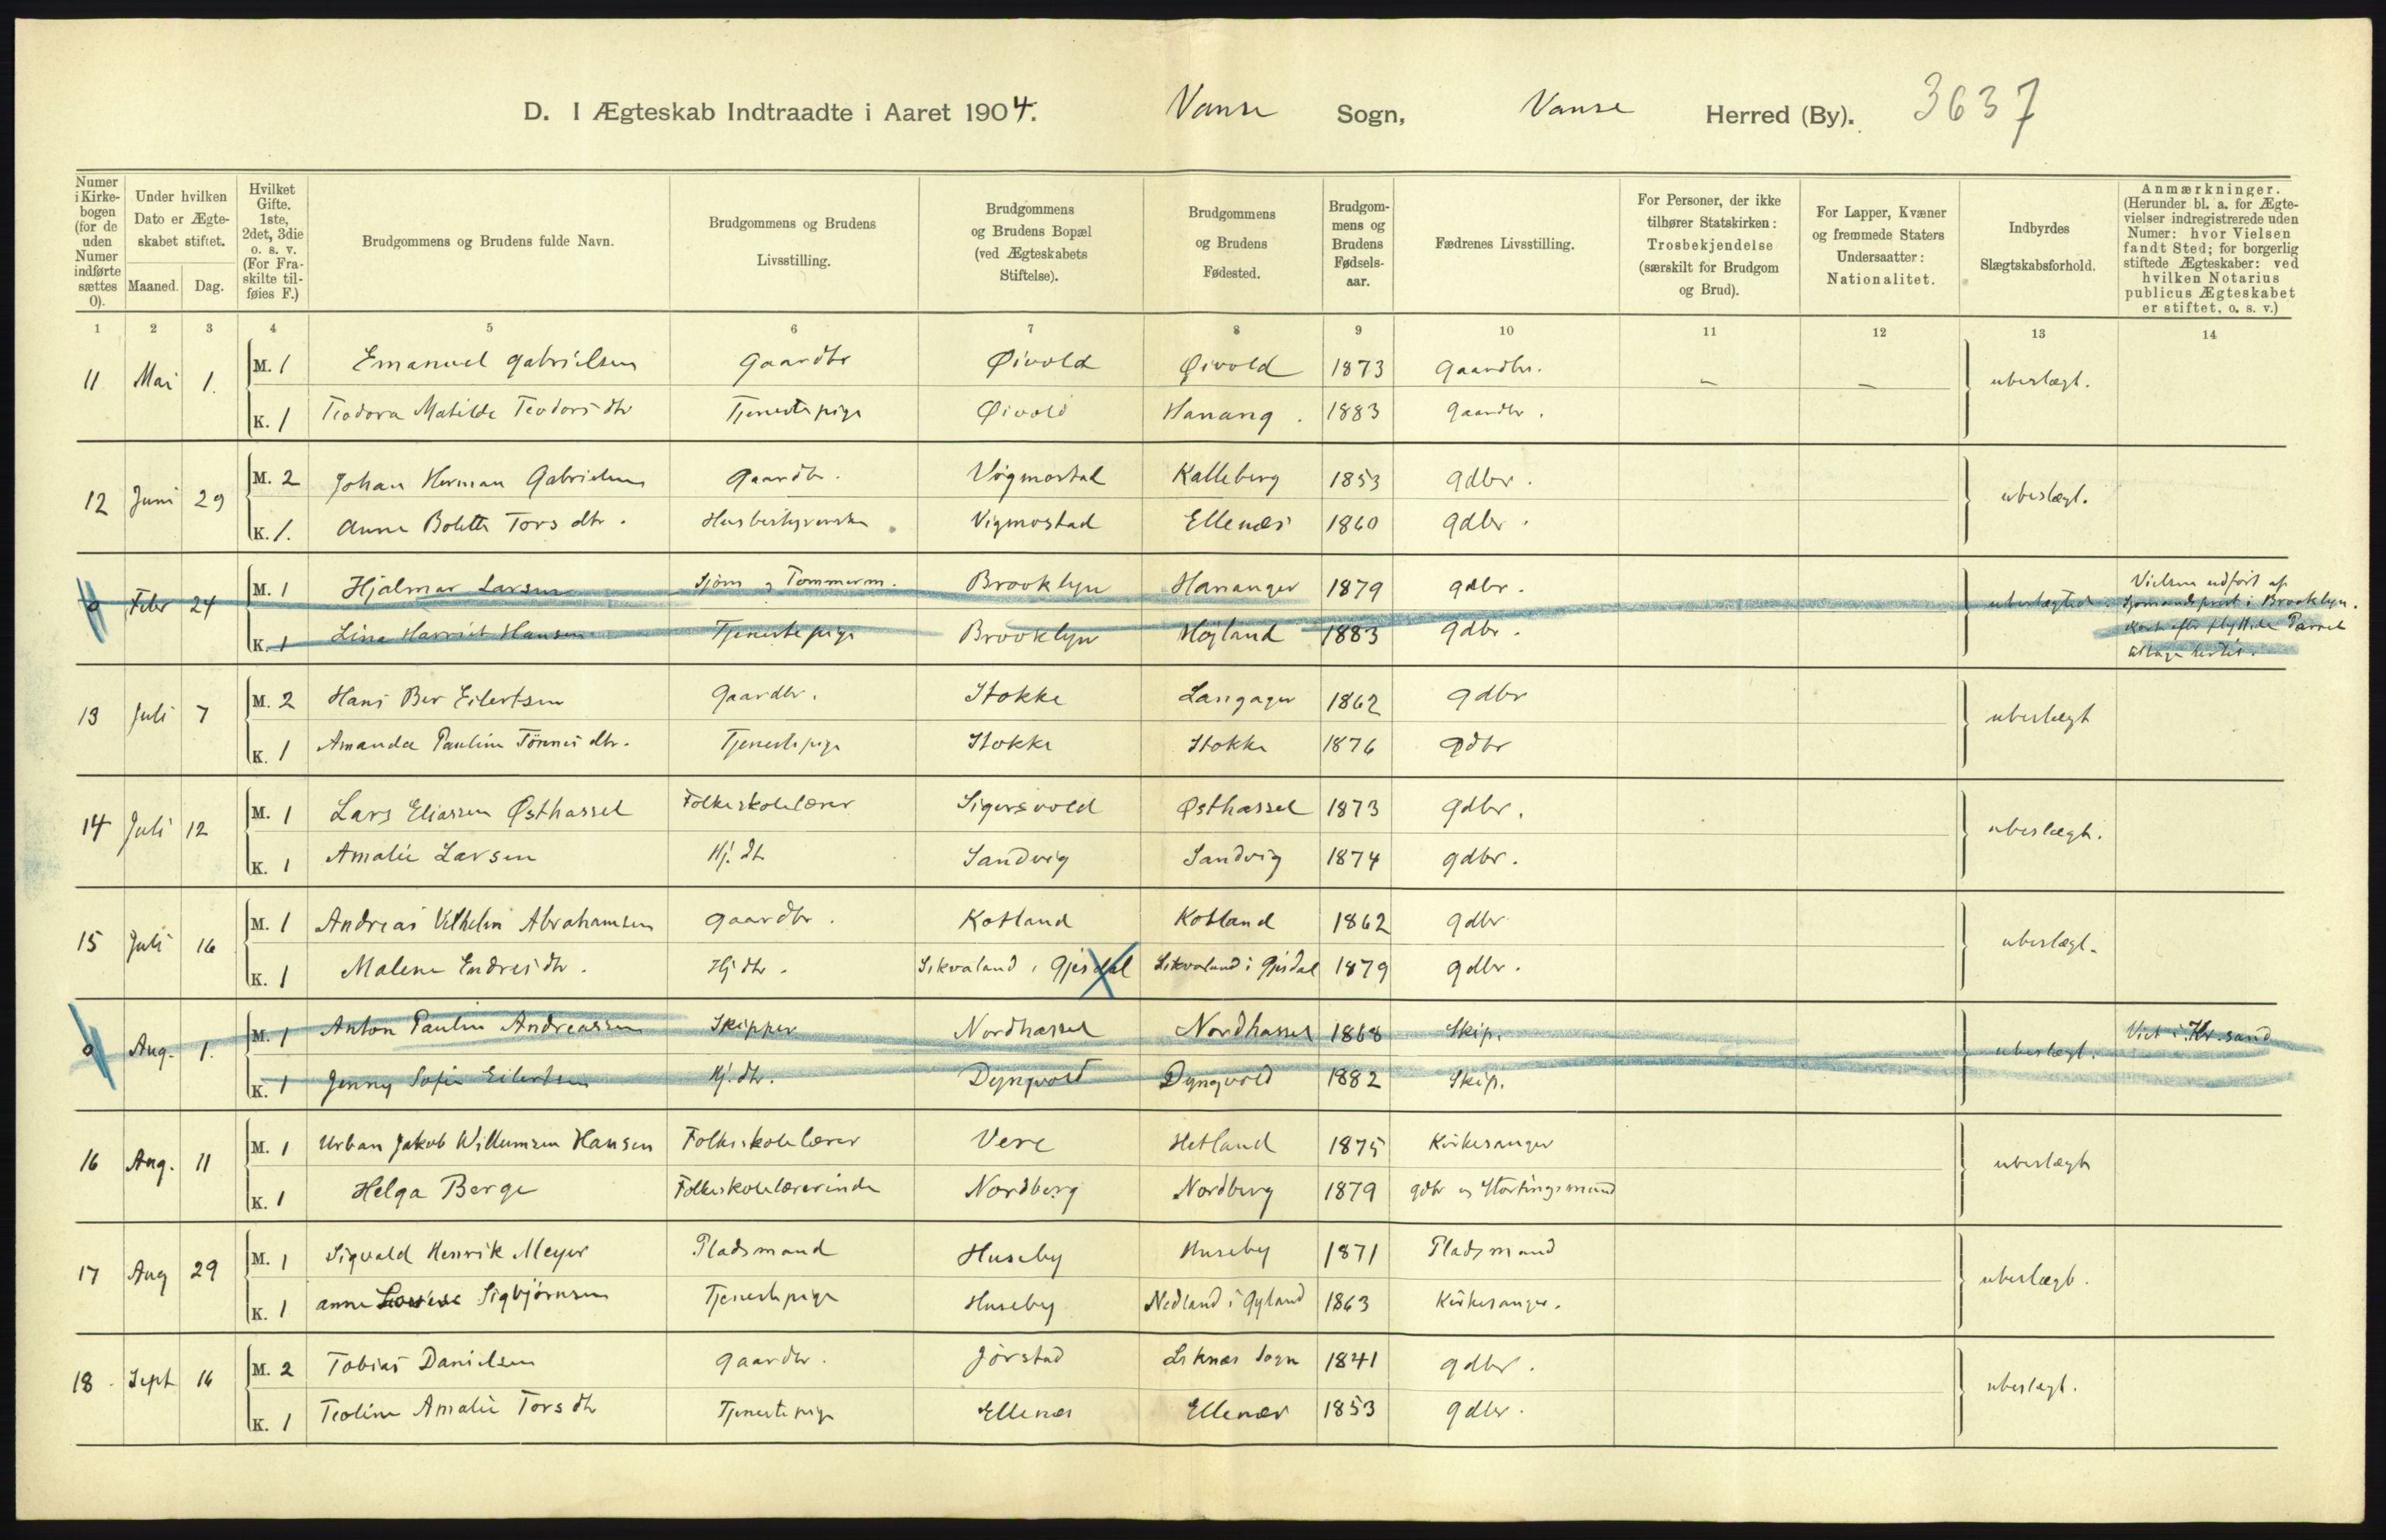 D. I Ægteskab Indtraadte i Aaret 1904. Vanse Sogn, Vanse Herred (By). 3637
Numer i Kirkebogen (for de uden Numer indførte sættes 0). Under hvilken Dato er Ægteskabet stiftet. Maaned. Dag. Hvilket Gifte. 1ste, 2det, 3die o. s. v. (For Fraskilte tilføies F.) Brudgommens og Brudens fulde Navn. Brudgommens og Brudens Livsstilling. Brudgommens og Brudens Bopæl (ved Ægteskabets Stiftelse). Brudgommens og Brudens Fødested. Brudgommens og Brudens Fødselsaar. Fædrenes Livsstilling. For Personer, der ikke tilhører Statskirken: Trosbekjendelse (særskilt for Brudgom og Brud). For Lapper, Kvæner og fremmede Staters Undersaatter: Nationalitet. Indbyrdes Slægtskabsforhold. Anmærkninger. (Herunder bl. a. for Ægtevielser indregistrerede uden Numer: hvor Vielsen fandt Sted; for borgerlig stiftede Ægteskaber: ved hvilken Notarius publicus Ægteskabet er stiftet, o. s. v.)
1 2 3 4 5 6 7 8 9 10 11 12 13 14
11 Mai 1. M. 1 Emanuel Gabrielsen Gaardbr Øivold Øivold 1873 Gaardbr. – – ubeslægt.
K. 1 Teodora Matilde Teodorsdtr Tjenestepige Øivold Hanang. 1883 Gaardbr.
12 Juni 29 M. 2 Johan Herman Gabrielsen Gaardbr. Vigmostad Kalleberg 1853 gdbr. ubeslægt.
K. 1. Anne Bolette Torsdtr. Husbestyrerske Vigmostad Ellenæs 1860 gdbr.
0 Febr 24 M. 1 Hjalmar Larsen Sjøm og Tømmerm. Brooklyn Hananger 1879 gdbr. ubeslægtede. Vielsen udført af
Sjømandsprest i Brooklyn.
K. 1 Lina Harriet Hansen Tjenestepige Brooklyn Højland 1883 gdbr. efter flyttede Parret
tilbage hertil.
13 Juli 7 M. 2 Hans Ber Eilertsen Gaardbr. Stokke Langager 1862 gdbr ubeslægt
K. 1 Amanda Pauline Tønnesdtr. Tjenestepige Stokke Stokke 1876 gdbr
14 Juli 12 M. 1 Lars Eliassen Østhassel Folkeskolelærer Sigersvold Østhassel 1873 gdbr. ubeslægt.
K. 1 Amalie Larsen Hj. dtr Sandvig Sandvig 1874 gdbr.
15 Juli 16 M. 1 Andreas Vilhelm Abrahamsen gaardbr. Kotland Kotland 1862 gdbr ubeslægt.
K. 1 Malene Endresdtr. Hj dtr. Sikvaland i Gjesdal Sikvaland i Gjesdal 1879 gdbr.
0 Aug. 1. M. 1 Anton Paulin Andreassen Skipper Nordhassel Nordhassel 1868 Skip. ubeslægt. Viet i Kr.sand
K. 1 Jenny Sofie Eilertsen Hj. dtr. Dyngvold Dyngvold 1882 Skip.
16 Aug. 11 M. 1 Urban Jakob Willumsen Hansen Folkeskolelærer Vere Hetland 1875 Kirkesanger ubeslægt
K. 1 Helga Berge Folkeskolelærerinde Nordberg Nordberg 1879 gdbr og Stortingsmand
17 Aug 29 M. 1 Sigvald Henrik Meyer Pladsmand Huseby Huseby 1871 Pladsmand ubeslægt.
K. 1 anne Sigbjørnsen Tjenestepige Huseby Nedland i Gyland 1863 Kirkesanger.
18 Sept 16 M. 2 Tobias Danielsen gaardbr. Jørstad Liknæs Sogn 1841 gdbr. ubeslægt.
K. 1 Teoline Amalie Torsdtr Tjenestepige Ellenæs Ellenæs 1853 gdbr.